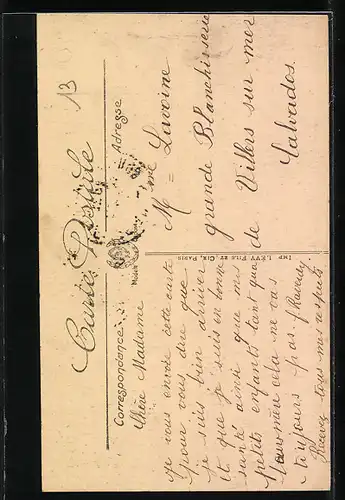 13
Carte Postale
Correspondance
Adresse
Chère Madame
je vous envoie cette carte
pour vous dire que
je suis bien arriver
et que je suis en bonne
santé ainsi que mes
petits enfants tant qua
cela ne vas
toujours pas
Recevez tous mes respects
IMP. LÉVY FILS ET CIE, PARIS
Mme Lavoine
grande Blanchisserie
de Villers sur mer
Calvados.